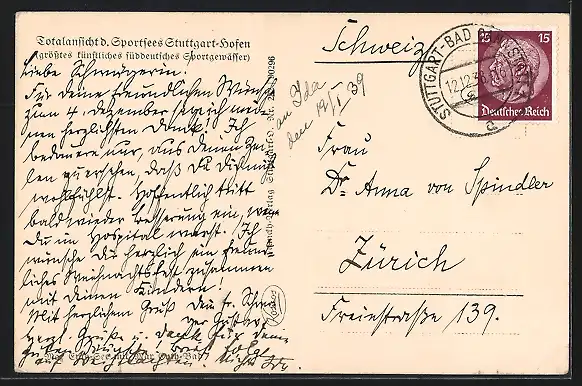 Totalansicht d. Sportsees Stuttgart-Hofen
(größtes künstliches süddeutsches Sportgewässer)
Liebe Schwägerin!
Für deine freundlichen Wünsche
zum 4. Dezember sage ich mei-
nen herzlichsten Dank! Ich
bedauere nur, aus Deinen Zei-
len zu ersehen, daß Du Dich
wohlfühlst. Hoffentlich tritt
bald wieder Besserung ein, wenn
Du im Hospital warst. Ich
wünsche Dir herzlich ein freund-
liches Weihnachtsfest zusammen
mit Deinen Kindern!
Mit herzlichem Gruß Dein tr. Schwa-
ger Gustav.
Schweiz
an Ida
den 19/I 39
Frau
Dr. Anna von Spindler
Zürich
Freiestraße 139.
STUTTGART-BAD CANNSTATT
12.12.38
15 15
Deutsches Reich